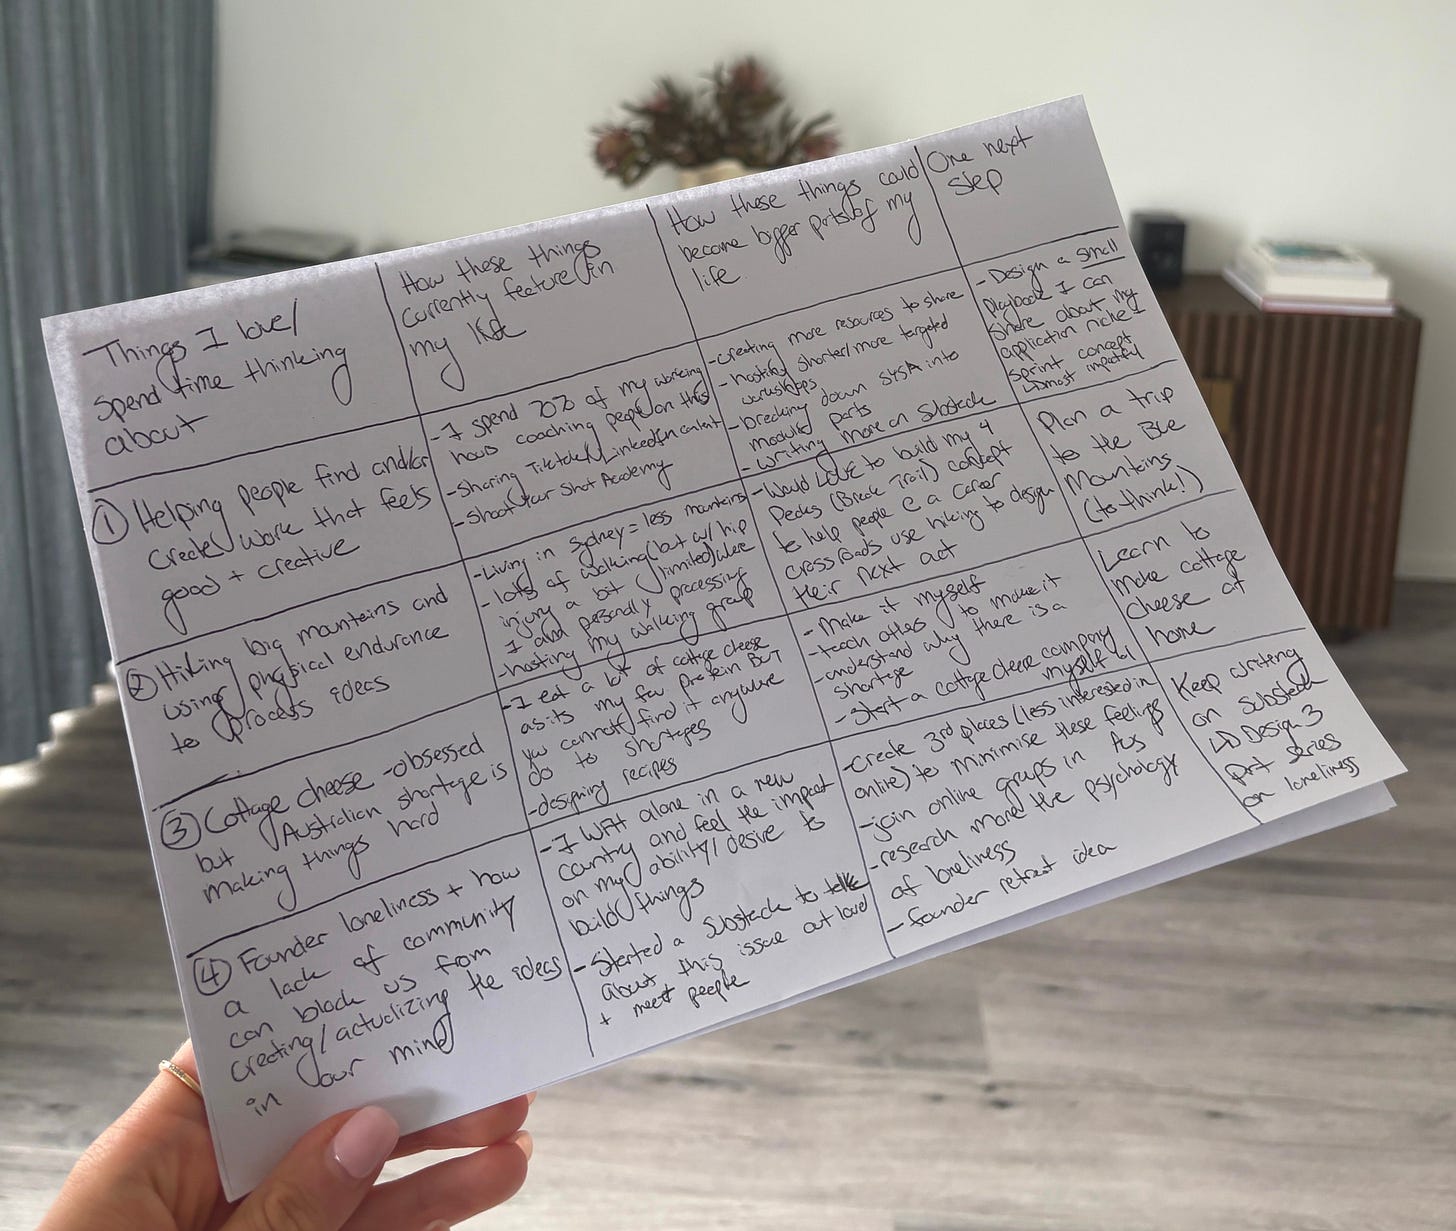 Things I love/
spend time thinking
about
How these things
currently feature in
my life
How these things could
become bigger parts of my
life.
One next
step
① Helping people find and/or
create work that feels
good + creative
- I spend 70% of my working
hours coaching people on this
- Sharing Tiktok/LinkedIn content
- Shoot Your Shot Academy
- creating more resources to share
- hosting shorter/more targeted
workshops
- breaking down SYSA into
modules parts
- writing more on Substack
- Design a small
playbook I can
share about my
application niche 1
sprint concept
↳ most impactful
② Hiking big mountains and
using physical endurance
to process ideas
- Living in Sydney = less mountains
- lots of walking (but w/ hip
injury a bit limited) where
I and personally processing
- hosting my walking group
- Would LOVE to build my 4
Peaks (Break Trail) concept
to help people @ a career
crossroads use hiking to design
their next act
Plan a trip
to the Blue
Mountains
(to think!)
③ Cottage cheese - obsessed
but Australian shortage is
making things hard
- I eat a lot of cottage cheese
as its my fav protein BUT
you cannot find it anywhere
do to shortages
- designing recipes
- Make it myself
- teach others to make it
- understand why there is a
shortage
- Start a cottage cheese company
myself lol
Learn to
make cottage
cheese at
home
④ Founder loneliness + how
a lack of community
can block us from
creating/actualizing the ideas
in our mind
- I WFH alone in a new
country and feel the impact
on my ability/desire to
build things
- Started a Substack to talk
about this issue out loud
+ meet people
- create 3rd places (less interested in
online) to minimise these feelings
- join online groups in Aus
- research more the psychology
of loneliness
- founder retreat idea
Keep writing
on Substack
↳ Design 3
part series
on loneliness